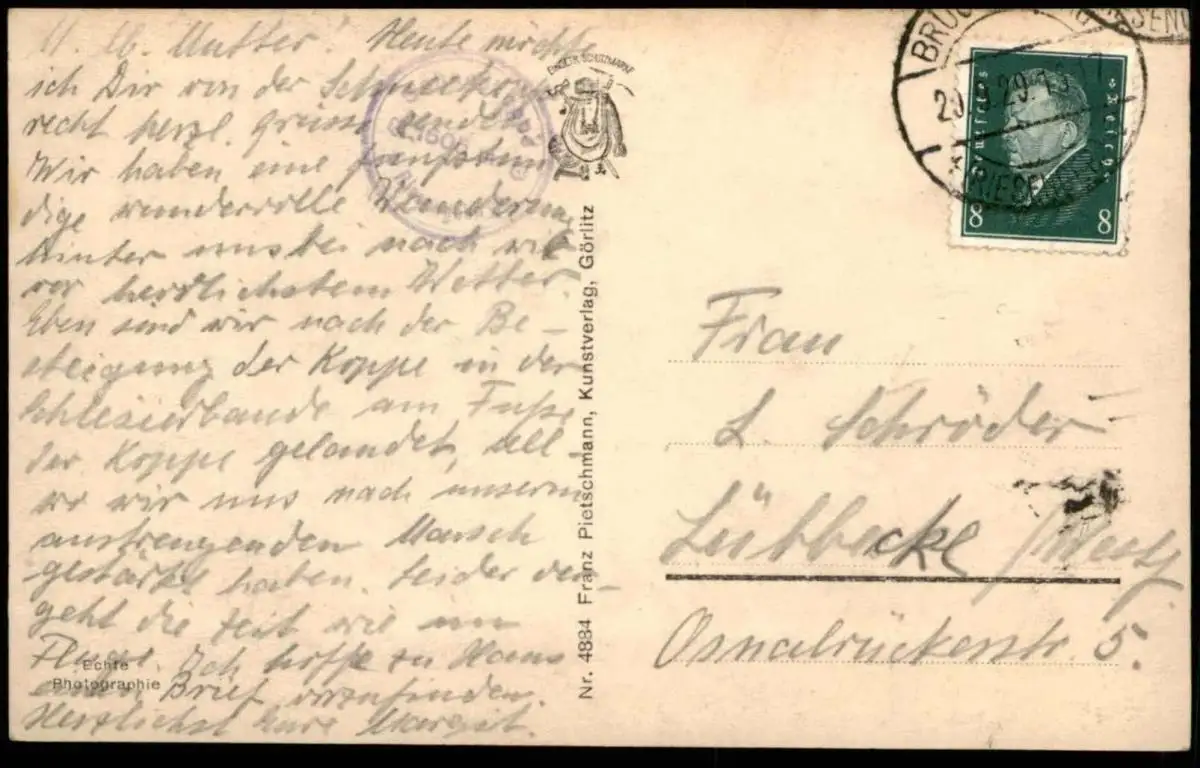 Mutter! Heute möchte
ich Dir von der Schneekoppe
recht herzl. Grüsse senden.
Wir haben eine fünfstün-
dige wundervolle Wanderung
hinter uns bei nach wie
vor herrlichstem Wetter.
Eben sind wir nach der Be-
steigung der Koppe in der
Schlesierbaude am Fuße
der Koppe gelandet,
wo wir uns nach unserm
anstrengenden Marsch
gestärkt haben. Leider ver-
geht die Zeit wie im
Fluge. Ich hoffe zu Haus
Brief vorzufinden.
Herzlichst Eure Margret.
Echte
Photographie
Nr. 4884 Franz Pietschmann, Kunstverlag, Görlitz
8
8
Frau
L. Schröder
Lübbecke /Westf
Osnabrückerstr. 5.